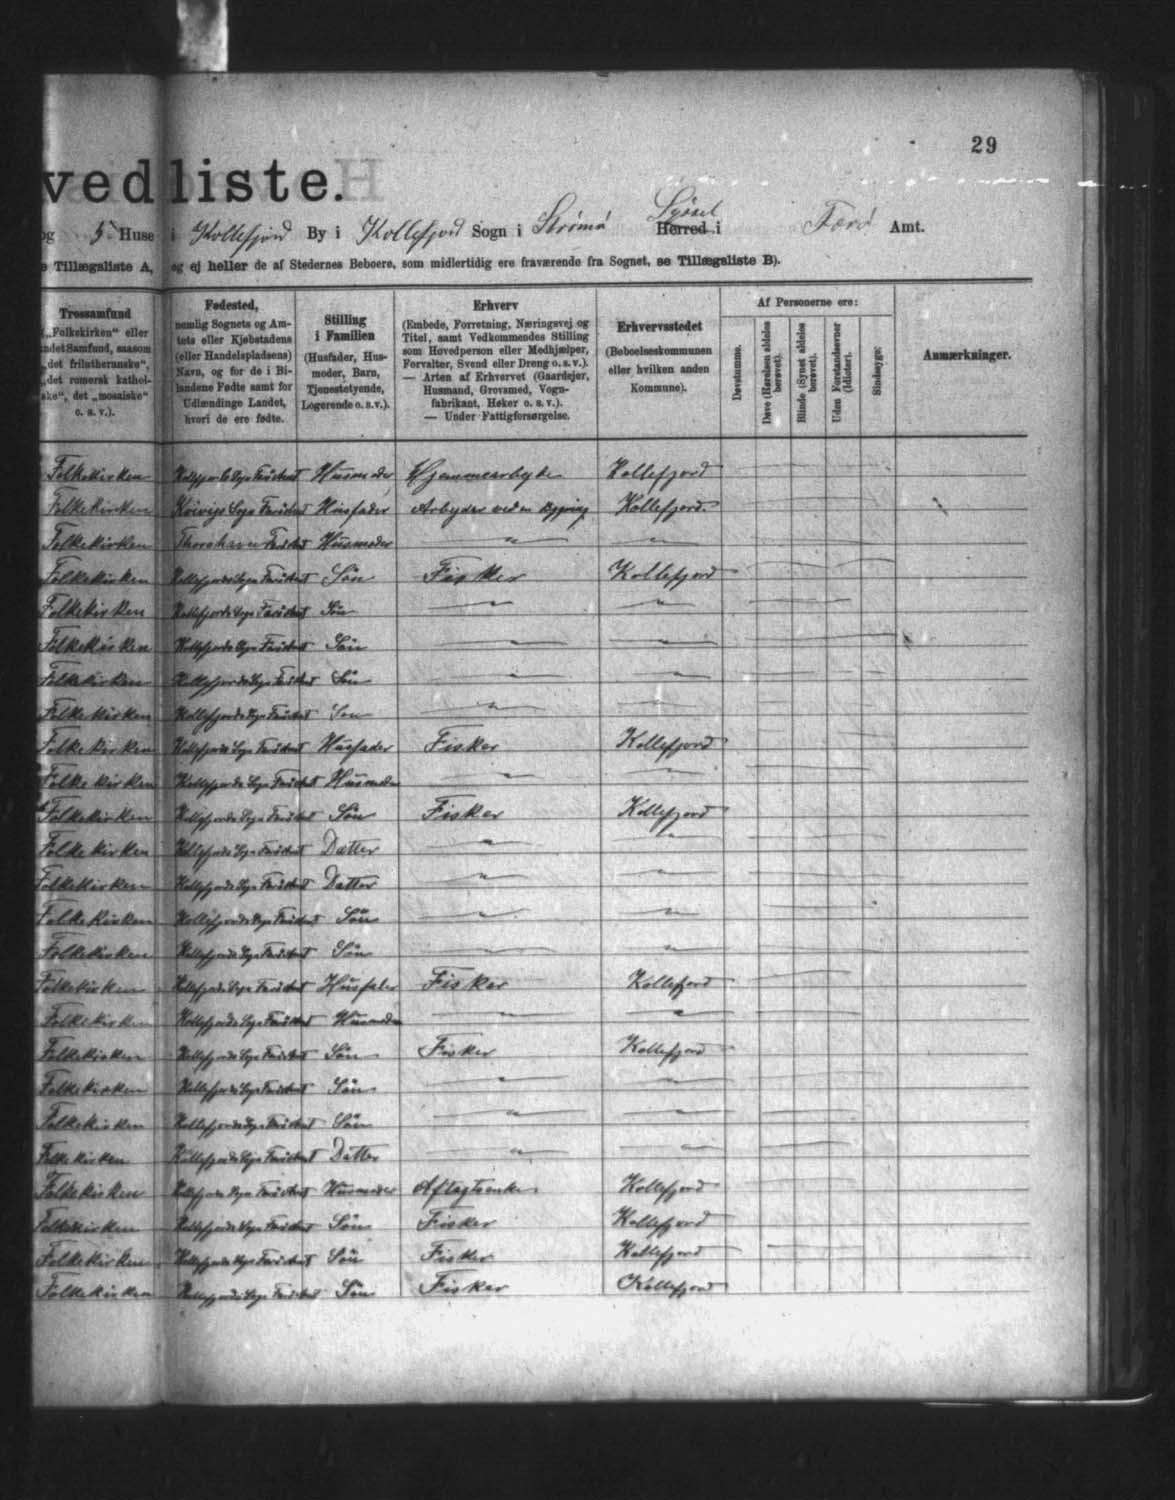 29
vedliste.
og 5 Huse i Kollefjord By i Kollefjord Sogn i Strømø Syssel Herred i Færø Amt.
e Tillægsliste A, og ej heller de af Stedernes Beboere, som midlertidig ere fraværende fra Sognet, se Tillægsliste B).
Trossamfund
(„Folkekirken“ eller
andet Samfund, saasom
„det frilutheranske“,
„det romersk kathol-
ske“, det „mosaiske“
o. s. v.).
Fødested,
nemlig Sognets og Am-
tets eller Kjøbstadens
(eller Handelspladsens)
Navn, og for de i Bi-
landene Fødte samt for
Udlændinge Landet,
hvori de ere fødte.
Stilling
i Familien
(Husfader, Hus-
moder, Barn,
Tjenestetyende,
Logerende o. s. v.).
Erhverv
(Embede, Forretning, Næringsvej og
Titel, samt Vedkommendes Stilling
som Hovedperson eller Medhjælper,
Forvalter, Svend eller Dreng o. s. v.).
— Arten af Erhvervet (Gaardejer,
Husmand, Grovsmed, Vogn-
fabrikant, Høker o. s. v.).
— Under Fattigforsørgelse.
Erhvervsstedet
(Beboelseskommunen
eller hvilken anden
Kommune).
Af Personerne ere:
Døvstumme.
Døve (Hørelsen aldeles
berøvet).
Blinde (Synet aldeles
berøvet).
Uden Forstandsevner
(Idioter).
Sindssyge:
Anmærkninger.
Folkekirken Kollefjords Sogn Færø Amt Husmoder Hjemmearbyde Kollefjord
Folkekirken Sogn Færø Amt Husfader Arbyder ved Kollefjord.
Folkekirken Thorshavn Færø Amt Husmoder — " — — " —
Folkekirken Kollefjords Sogn Færø Amt Sön Fisker Kollefjord
Folkekirken Kollefjords Sogn Færø Amt Sön — " — — " —
Folkekirken Kollefjords Sogn Færø Amt Sön — " — — " —
Folkekirken Kollefjords Sogn Færø Amt Sön — " — — " —
Folkekirken Kollefjords Sogn Færø Amt Sön — " — — " —
Folkekirken Kollefjords Sogn Færø Amt Husfader Fisker Kollefjord
Folkekirken Kollefjords Sogn Færø Amt Husmoder — " — — " —
Folkekirken Kollefjords Sogn Færø Amt Sön Fisker Kollefjord
Folkekirken Kollefjords Sogn Færø Amt Datter — " — — " —
Folkekirken Kollefjords Sogn Færø Amt Datter — " — — " —
Folkekirken Kollefjords Sogn Færø Amt Sön — " — — " —
Folkekirken Kollefjords Sogn Færø Amt Sön — " — — " —
Folkekirken Kollefjords Sogn Færø Amt Husfader Fisker Kollefjord
Folkekirken Kollefjords Sogn Færø Amt Husmoder — " — — " —
Folkekirken Kollefjords Sogn Færø Amt Sön Fisker Kollefjord
Folkekirken Kollefjords Sogn Færø Amt Sön — " — — " —
Folkekirken Kollefjords Sogn Færø Amt Sön — " — — " —
Folkekirken Kollefjords Sogn Færø Amt Datter — " — — " —
Folkekirken Kollefjords Sogn Færø Amt Husmoder Aftægtsenke Kollefjord
Folkekirken Kollefjords Sogn Færø Amt Sön Fisker Kollefjord
Folkekirken Kollefjords Sogn Færø Amt Sön Fisker Kollefjord
Folkekirken Kollefjords Sogn Færø Amt Sön Fisker Kollefjord